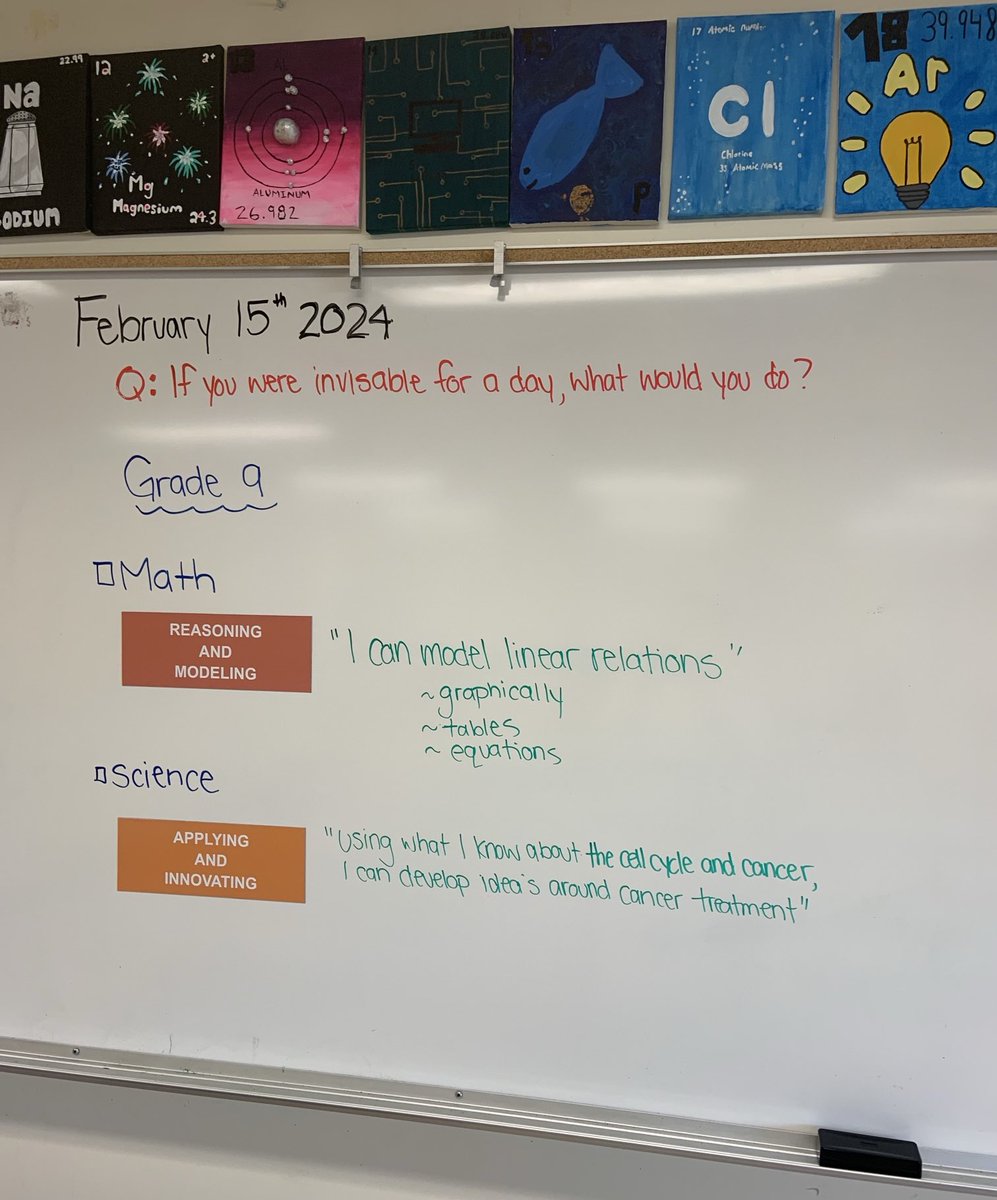 22.99
Na
SODIUM
12 2+
Mg
Magnesium
24.3
ALUMINUM
26.982
P
17 Atomic number
Cl
Chlorine
35 Atomic Mass
18 39.948
Ar
February 15th 2024
Q: If you were invisable for a day, what would you do?
Grade 9
Math
REASONING
AND
MODELING
"I can model linear relations"
~graphically
~tables
~equations
Science
APPLYING
AND
INNOVATING
"Using what I know about the cell cycle and cancer,
I can develop idea's around cancer treatment"